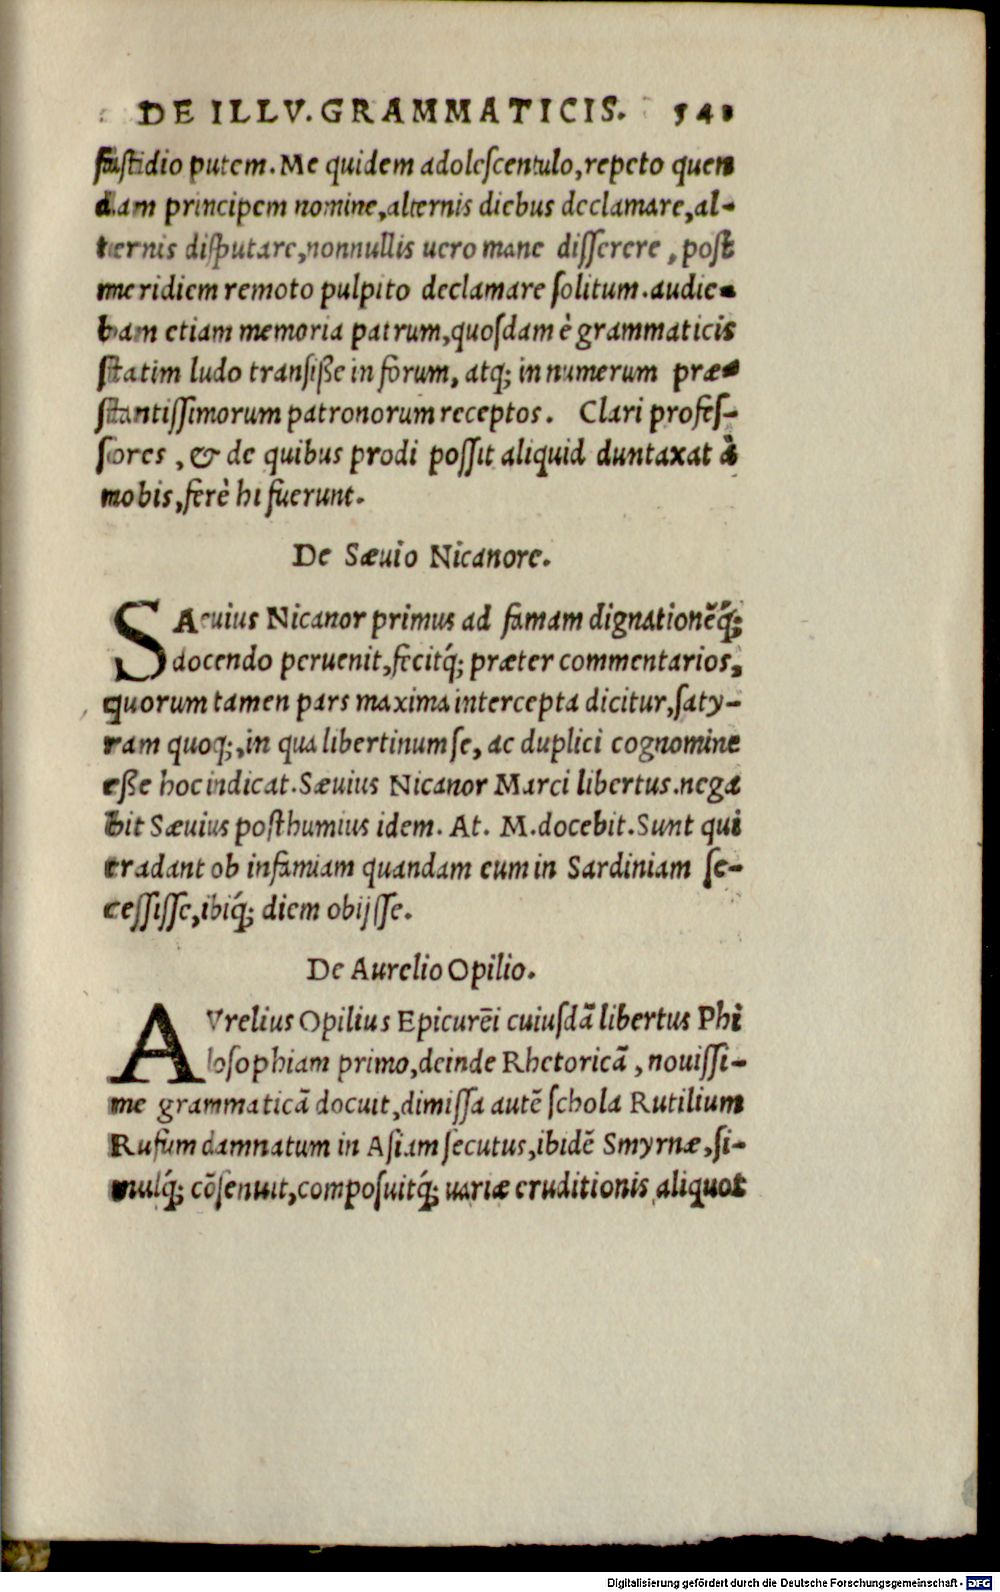 DE ILLV. GRAMMATICIS. 541
fastidio putem. Me quidem adolescentulo, repeto quen
dam principem nomine, alternis diebus declamare, al-
ternis disputare, nonnullis uero mane disserere, post
meridiem remoto pulpito declamare solitum. audie-
bam etiam memoria patrum, quosdam è grammaticis
statim ludo transiße in forum, atq; in numerum præ-
stantissimorum patronorum receptos. Clari profes-
sores, & de quibus prodi possit aliquid duntaxat à
nobis, ferè hi fuerunt.
De Sæuio Nicanore.
SAeuius Nicanor primus ad famam dignationẽq́;
docendo peruenit, fecitq́; præter commentarios,
quorum tamen pars maxima intercepta dicitur, saty-
ram quoq;, in qua libertinum se, ac duplici cognomine
eße hoc indicat. Sæuius Nicanor Marci libertus. nega
bit Sæuius posthumius idem. At. M. docebit. Sunt qui
tradant ob infamiam quandam eum in Sardiniam se-
cessisse, ibiq́; diem obijsse.
De Aurelio Opilio.
AVrelius Opilius Epicurẽi cuiusdã libertus Phi
losophiam primo, deinde Rhetoricã, nouissi-
me grammaticã docuit, dimissa autẽ schola Rutilium
Rufum damnatum in Asiam secutus, ibidẽ Smyrnæ, si-
mulq́; cõsenuit, composuitq́; uariæ eruditionis aliquot
Digitalisierung gefördert durch die Deutsche Forschungsgemeinschaft - DFG